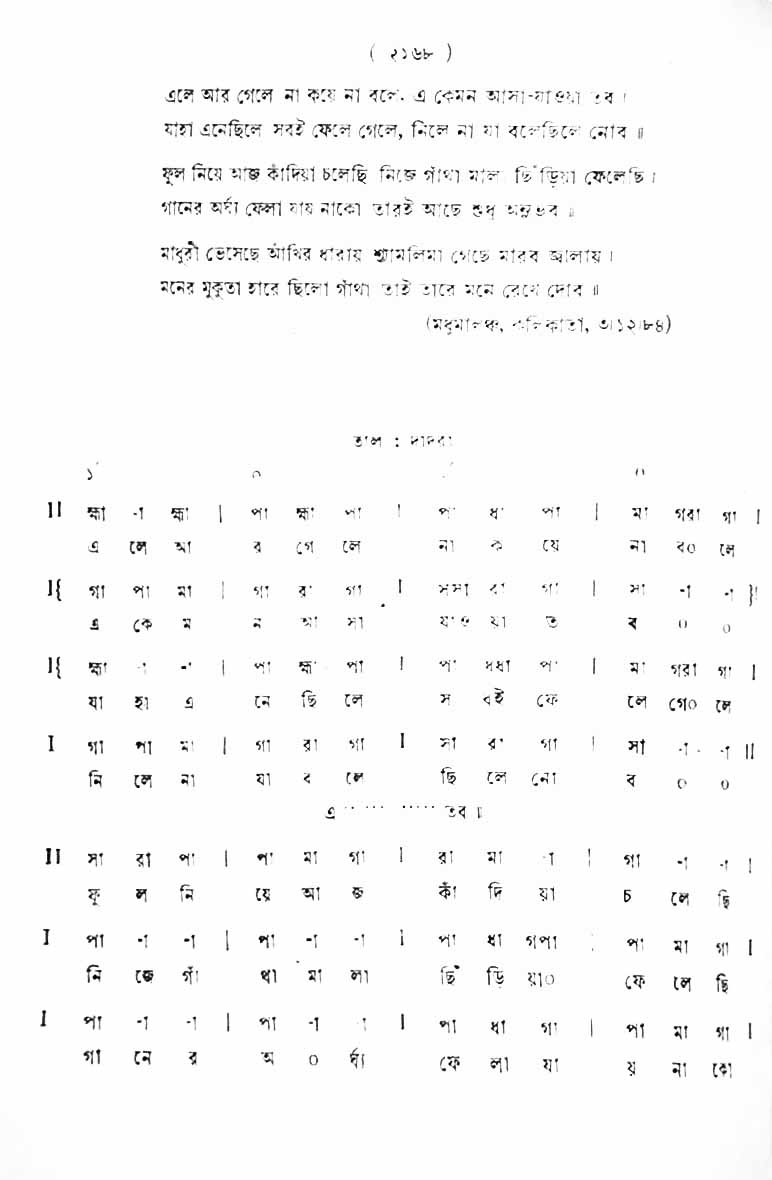 ( ২১৬৮ )
এলে আর গেলে না কয়ে না বলে, এ কেমন আসা-যাওয়া তব ।
যাহা এনেছিলে সবই ফেলে গেলে, নিলে না যা বলেছিলে নোব ॥
ফুল নিয়ে আজ কাঁদিয়া চলেছি নিজে গাঁথা মালা ছিঁড়িয়া ফেলেছি ।
গানের অর্ঘ্য ফেলা যায় নাকো তারই আছে শুধু অনুভব ॥
মাধুরী ভেসেছে আঁখির ধারায় শ্যামলিমা গেছে মারব জ্বালায় ।
মনের মুকুতা হারে ছিলো গাঁথা তাই তারে মনে রেখে দোব ॥
(মধুমালঞ্চ, কলিকাতা, ৩।১২।৮৪)
তাল : দাদরা
১´ ০ ০
II হ্মা -া হ্মা | পা হ্মা পা | পা ধা পা | মা গরা গা I
এ লে আ র গে লে না ক য়ে না ব০ লে
I{ গা পা মা | গা রা গা I সসা রা গা | সা -া -া }I
এ কে ম ন আ সা যাও যা ত ব ০ ০
I{ হ্মা -া -া | পা হ্মা পা I পা ধধা পা | মা গরা গা I
যা হা এ নে ছি লে স বই ফে লে গে০ লে
I গা পা মা | গা রা গা I সা রা গা | সা -া -া II
নি লে না যা ব লে ছি লে নো ব ০ ০
এ ... ... ..... তব ॥
II সা রা পা | পা মা গা I রা মা -া | গা -া -া I
ফু ল নি য়ে আ জ কাঁ দি য়া চ লে ছি
I পা -া -া | পা -া -া I পা ধা গপা | পা মা গা I
নি জে গাঁ থা মা লা ছিঁ ড়ি য়া০ ফে লে ছি
I পা -া -া | পা -া -া I পা ধা গা | পা মা গা I
গা নে র অ ০ র্ঘ্য ফে লা যা য় না কো